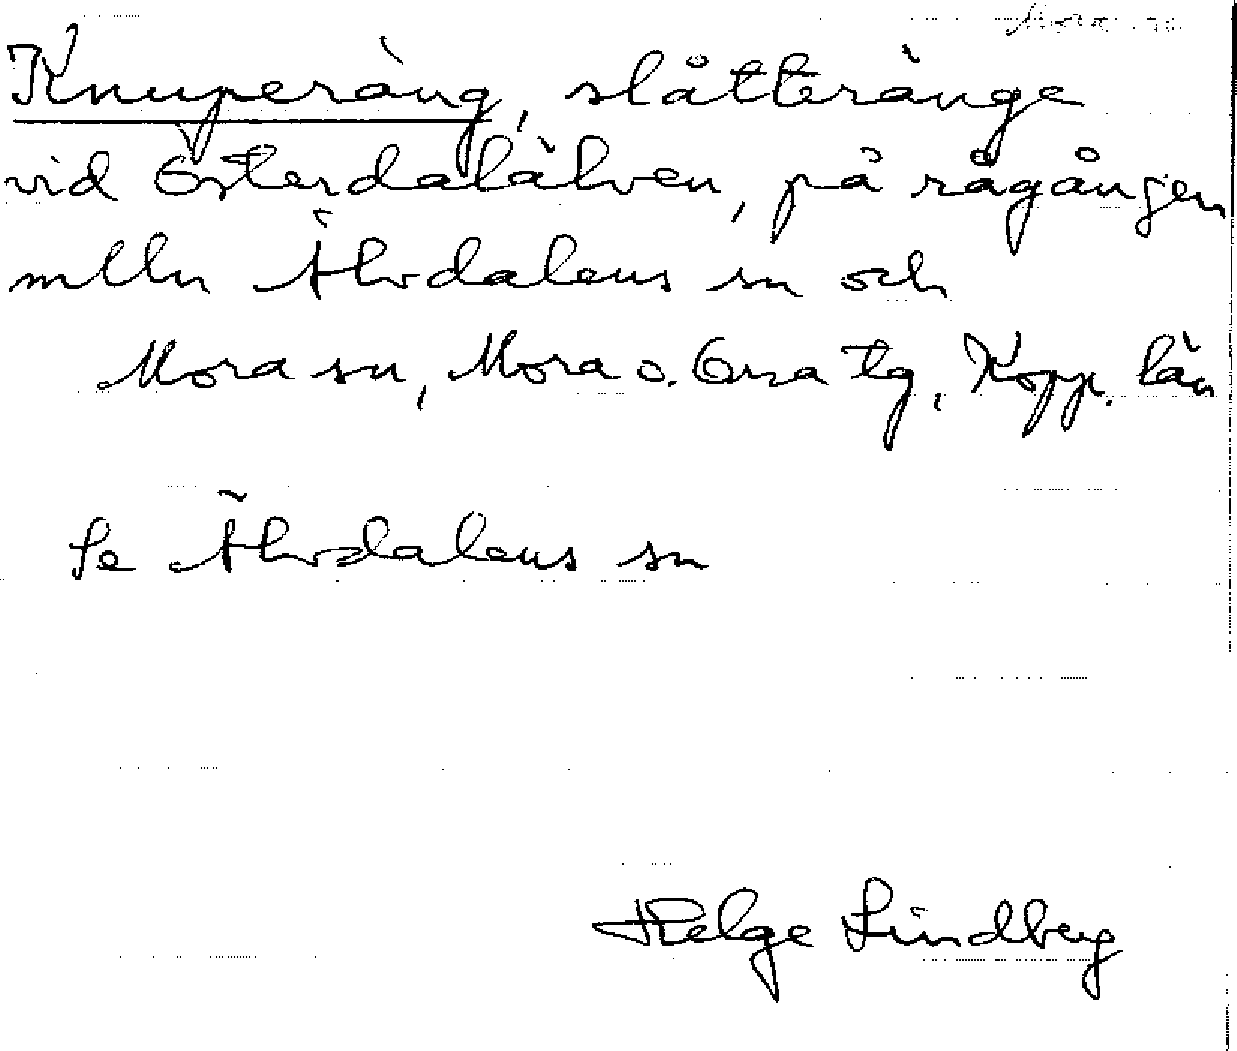 Mora sn
Knuperäng, slåtteränge
vid Österdalälven, på rågången
mlln Älvdalens sn och
Mora sn, Mora o. Orsa tg, Kopp. län
Se Älvdalens sn
Helge Lindberg